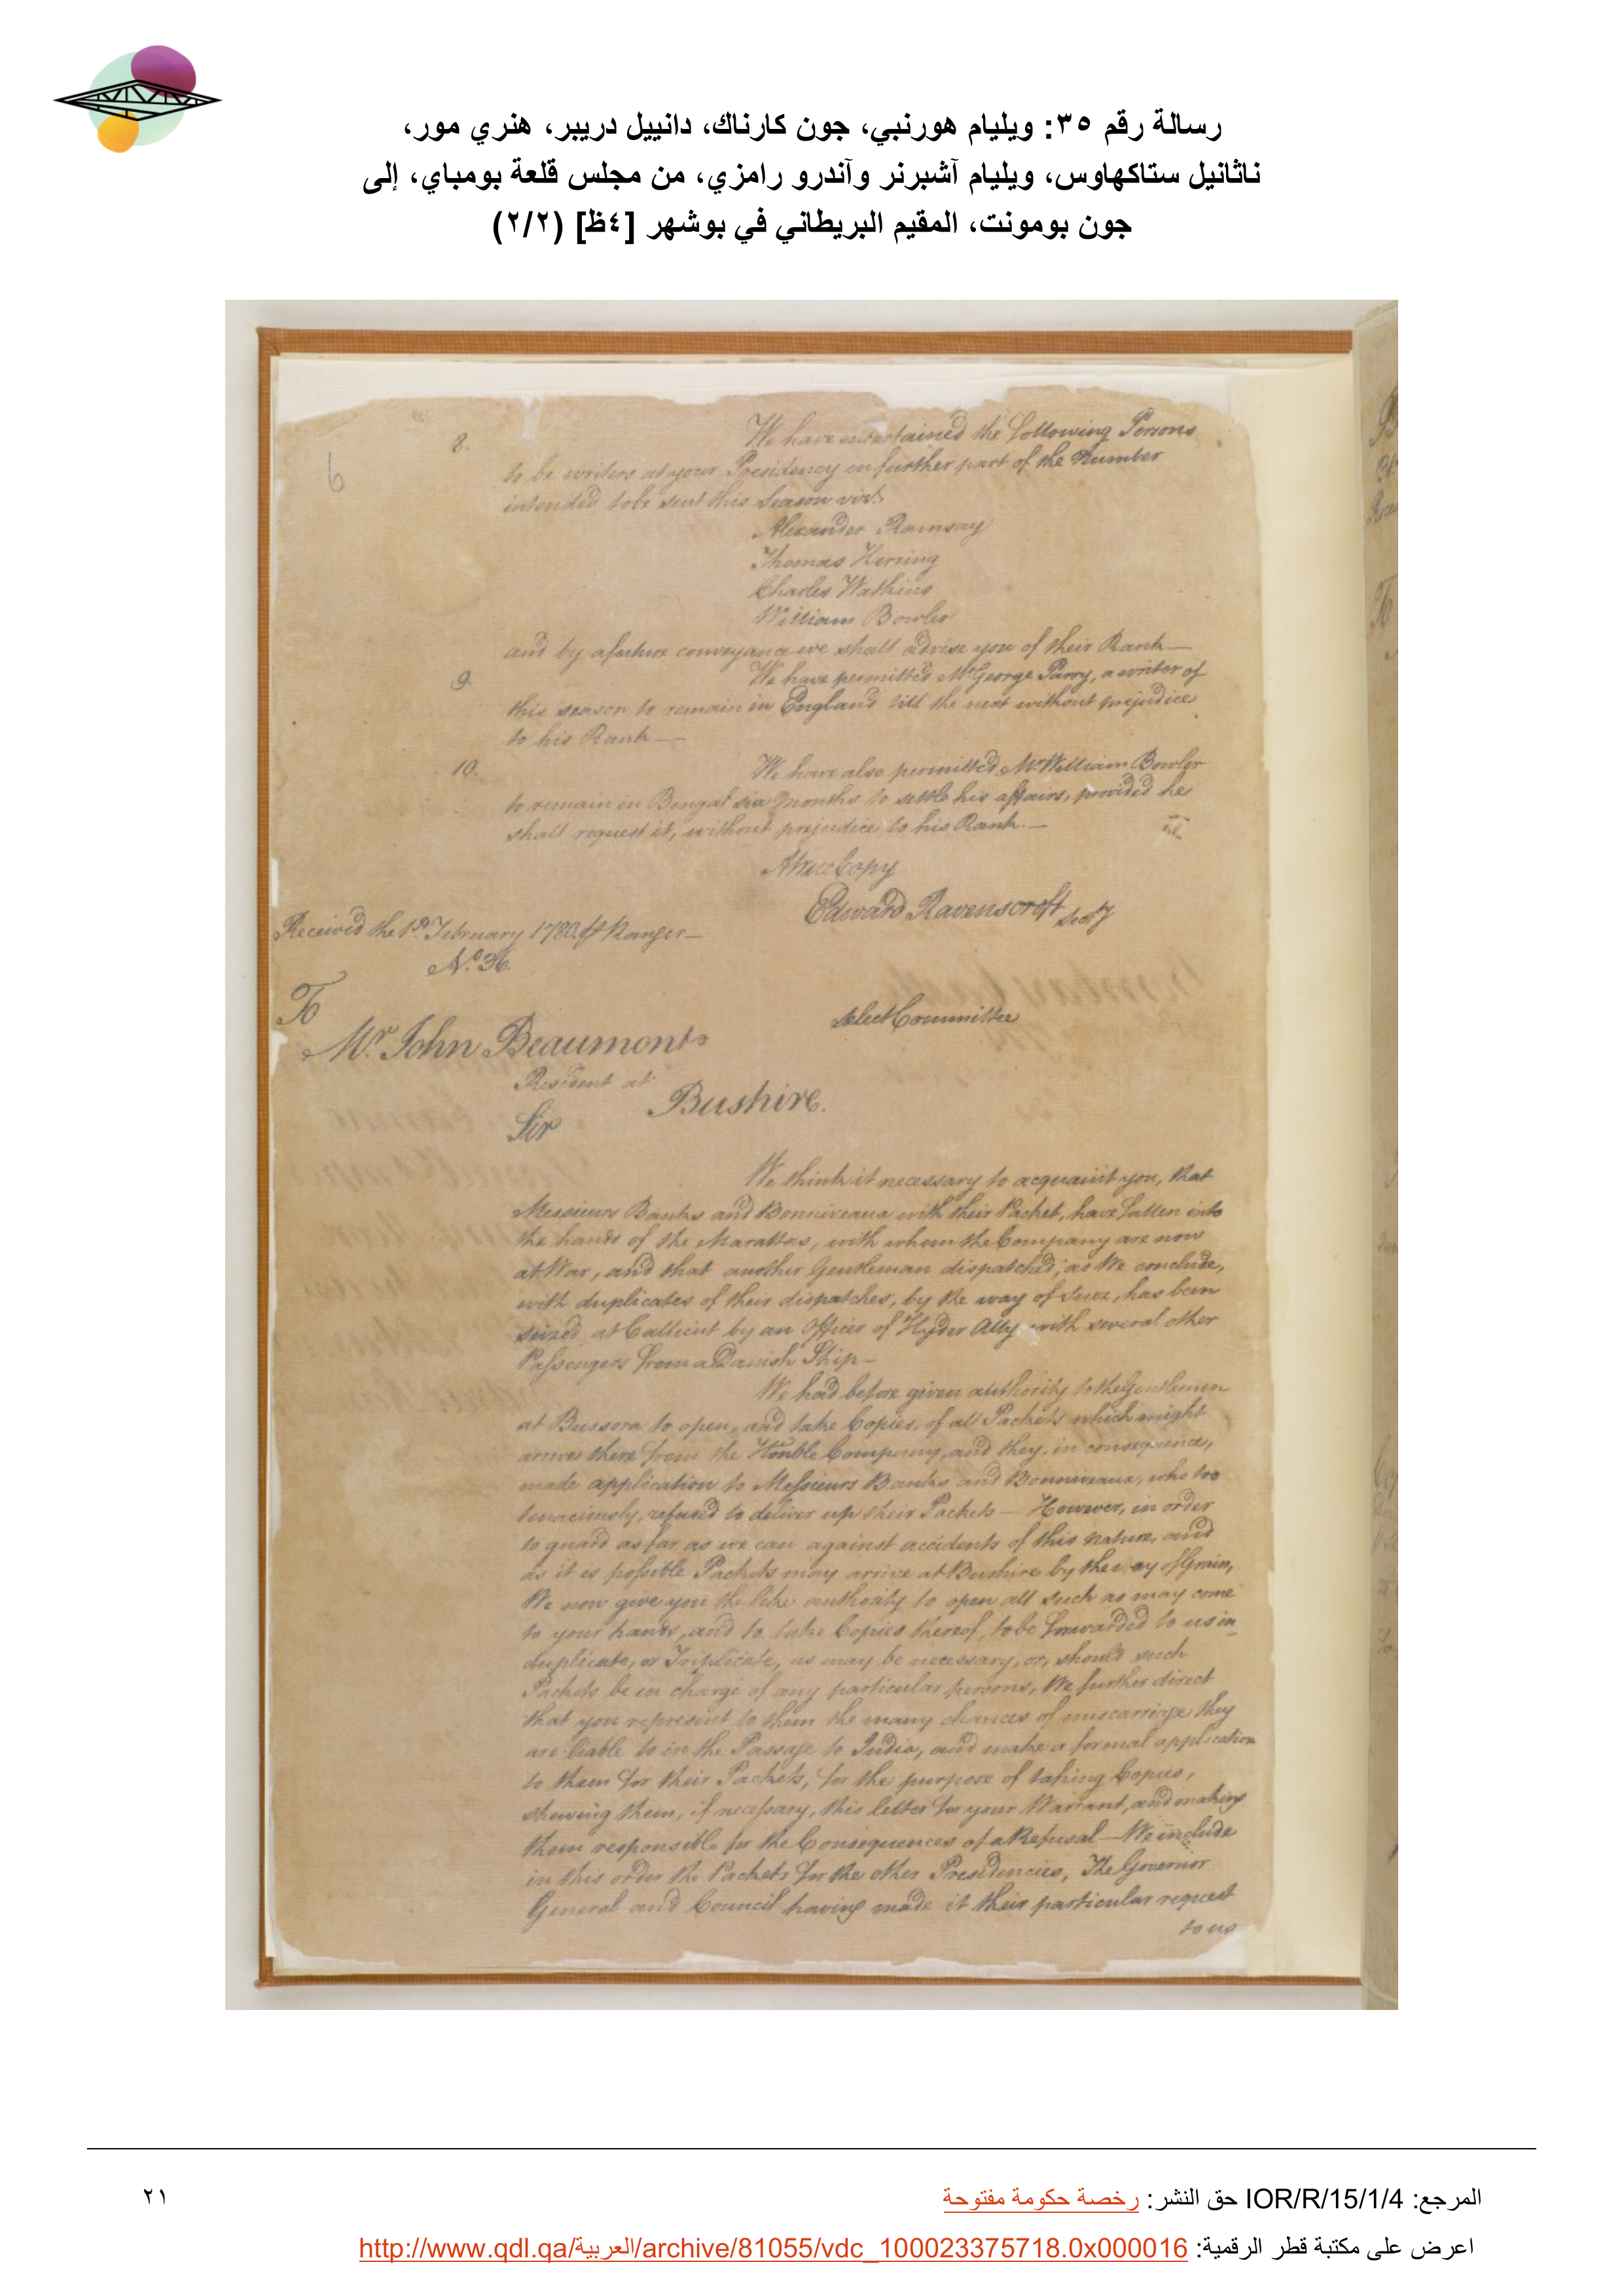 رسالة رقم ٣٥: ويليام هورنبي، جون كارناك، دانييل دريبر، هنري مور،
ناثانيل ستاكهاوس، ويليام آشبرنر وآندرو رامزي، من مجلس قلعة بومباي، إلى
جون بومونت، المقيم البريطاني في بوشهر [٤ظ] (٢/٢)
6
8. We have entertained the following Persons
to be writers at your Presidency in further part of the Number
intended to be sent this Season vizt.
Alexander Ramsay
Thomas Herring
Charles Watkins
William Bowler
and by a future conveyance we shall advise you of their Rank—
9. We have permitted Mr George Parry, a writer of
this season to remain in England till the next without prejudice
to his Rank—
10. We have also permitted Mr William Bowler
to remain in Bengal six Months to settle his affairs, provided he
shall request it, without prejudice to his Rank.—
A true Copy
Edward Ravenscroft Secty
Received the 1st February 1780 Ranger—
No. 36.
Select Committee
To
Mr. John Beaumont
Resident at
Bushire.
Sir
We think it necessary to acquaint you, that
Messieurs Banks and Bonniveaux with their Packet, have fallen into
the hands of the Marattas, with whom the Company are now
at War, and that another Gentleman dispatched, as We conclude,
with duplicates of their dispatches, by the way of Suez, has been
seized at Callicut by an Officer of Hyder Ally with several other
Passengers from a Danish Ship—
We had before given authority to the Gentlemen
at Bussora to open, and take Copies, of all Packets which might
arrive there from the Honble Company, and they, in consequence,
made application to Messieurs Banks and Bonniveaux, who too
tenaciously, refused to deliver up their Packets— However, in order
to guard as far as we can against accidents of this nature, and
as it is possible Packets may arrive at Bushire by the way of Grain,
We now give you the like authority to open all such as may come
to your hands, and to take Copies thereof, to be forwarded to us in
duplicate, or Triplicate, as may be necessary, or, should such
Packets be in charge of any particular persons, We further direct
that you represent to them the many chances of miscarriage they
are liable to in the Passage to India, and make a formal application
to them for their Packets, for the purpose of taking Copies,
shewing them, if necessary, this letter for your Warrant, and making
them responsible for the Consequences of a Refusal— We include
in this order the Packets for the other Presidencies, The Governor
General and Council having made it their particular request
to us
المرجع: IOR/R/15/1/4 حق النشر: رخصة حكومة مفتوحة
٢١
اعرض على مكتبة قطر الرقمية: http://www.qdl.qa/العربية/archive/81055/vdc_100023375718.0x000016